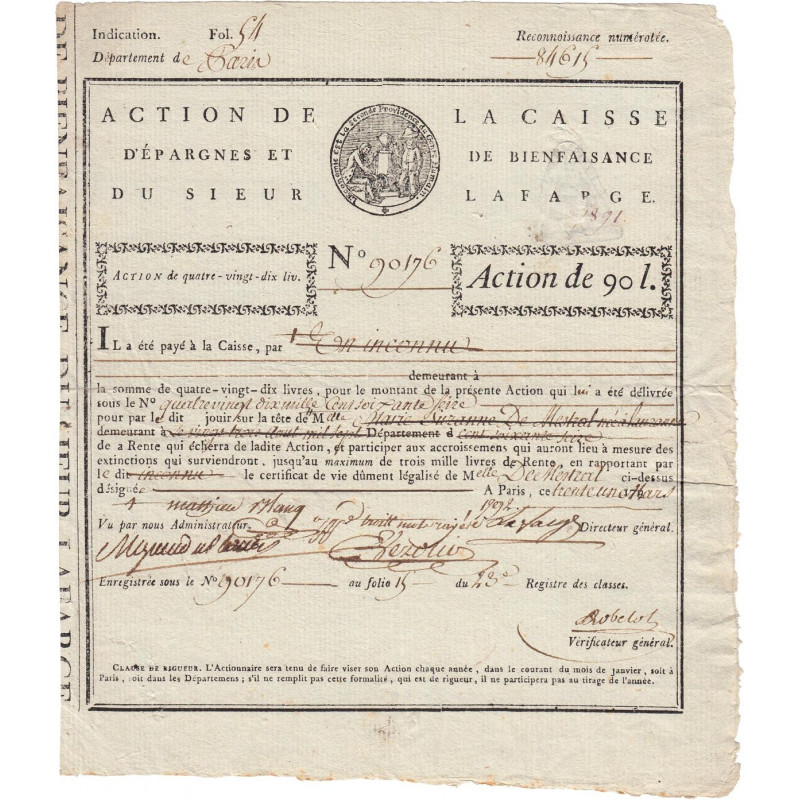 Indication. Fol. 54 Reconnoissance numérotée.
Département de Paris 84615
ACTION DE LA CAISSE
D'ÉPARGNES ET DE BIENFAISANCE
DU SIEUR LAFARGE.
L'économie est La seconde Providence du Genre Humain.
1891
ACTION de quatre-vingt-dix liv. No 90176 Action de 90 l.
IL a été payé à la Caisse, par un inconnu
demeurant à
la somme de quatre-vingt-dix livres, pour le montant de la présente Action qui lui a été délivrée
sous le No quatrevingt dix mille Cent soixante seize
pour par le dit jouir sur la tête de Mlle Marie Suzanne De Mestral née à
demeurant à le vingt trois aout mil sept Département Cent soixante seize
de a Rente qui écherra de ladite Action, et participer aux accroissemens qui auront lieu à mesure des
extinctions qui surviendront, jusqu'au maximum de trois mille livres de Rente, en rapportant par
le dit inconnu le certificat de vie dûment légalisé de Melle De Mestral ci-dessus
désignée A Paris, ce trente un Mars
1792
Vu par nous Administrateur Lafarge Directeur général.
Enregistrée sous le No 90176 au folio 15 du 23e Registre des classes.
Robelot
Vérificateur général.
CLAUSE DE RIGUEUR. L'Actionnaire sera tenu de faire viser son Action chaque année, dans le courant du mois de janvier, soit à
Paris, soit dans les Départemens; s'il ne remplit pas cette formalité, qui est de rigueur, il ne participera pas au tirage de l'année.
DE BIENFAISANCE DU SIEUR LAFARGE